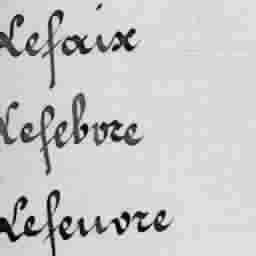 Lefaix
Lefebvre
Lefeuvre